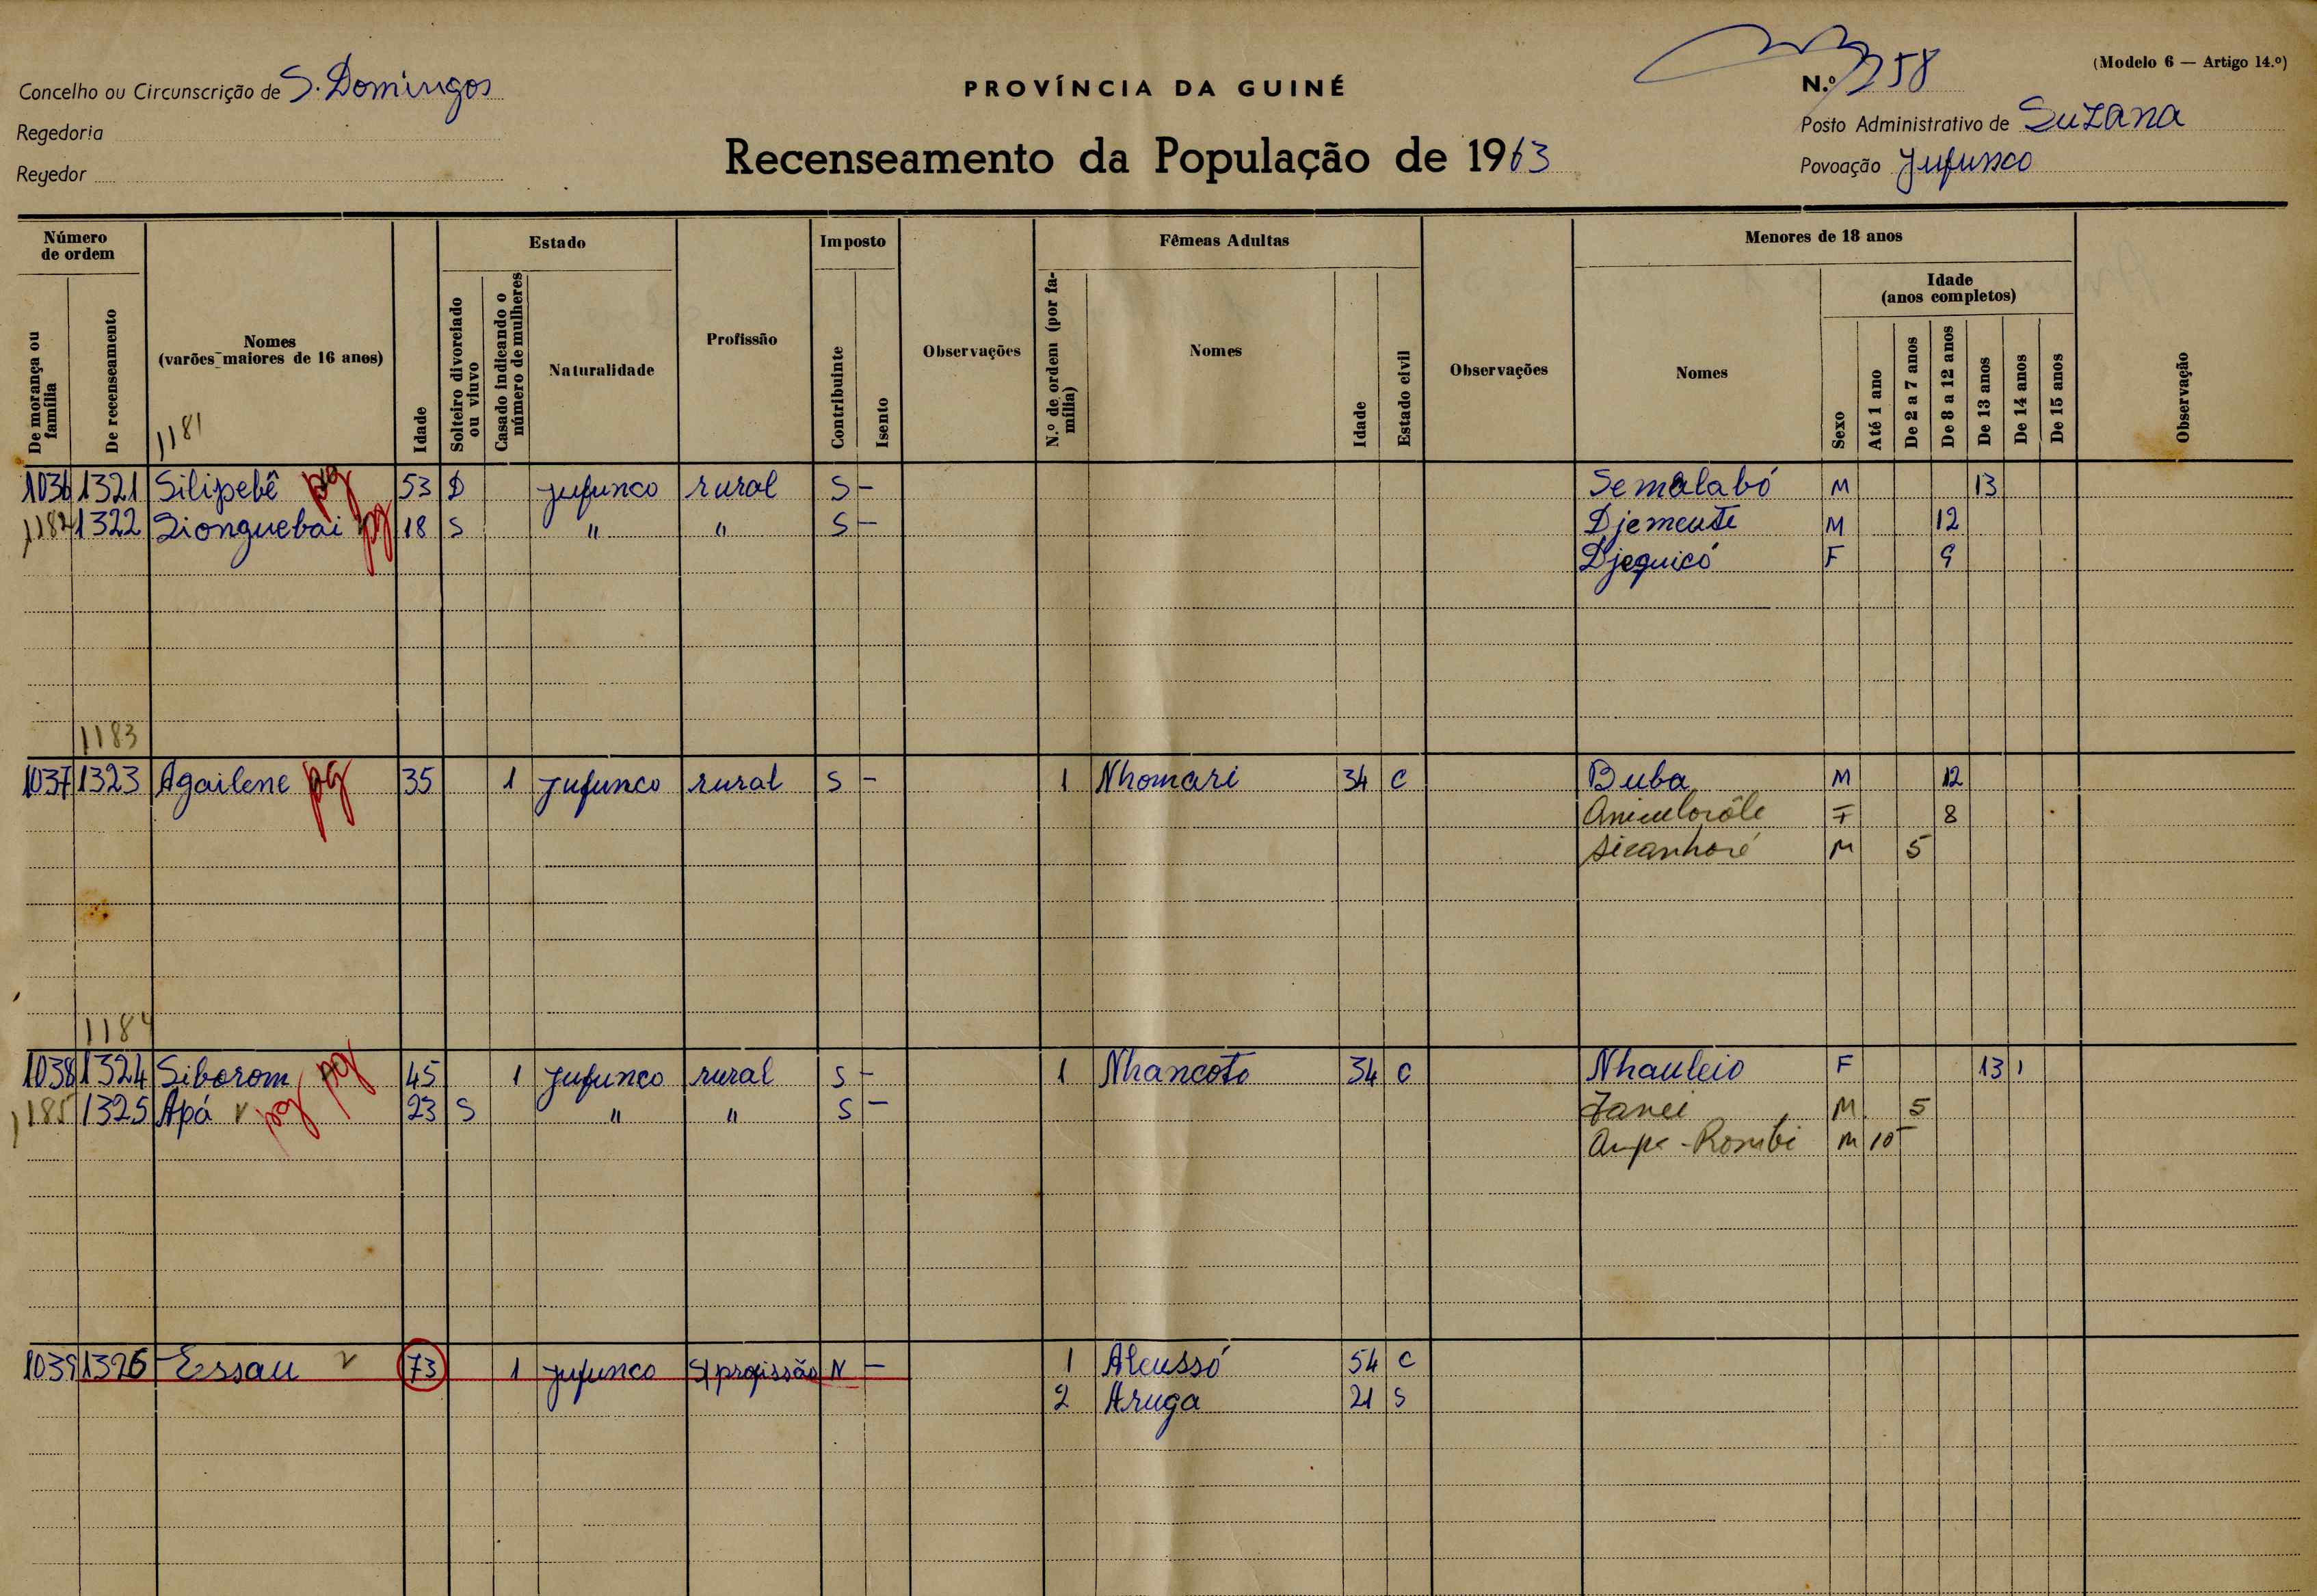 (Modelo 6 — Artigo 14.º)
Concelho ou Circunscrição de S. Domingos
PROVÍNCIA DA GUINÉ
N.º 258
Regedoria
Posto Administrativo de Suzana
Recenseamento da População de 1963
Regedor
Povoação Jufunco
Número de ordem
De morança ou família
De recenseamento
Nomes (varões maiores de 16 anos)
1181
Idade
Estado
Solteiro divorciado ou viuvo
Casado indicando o número de mulheres
Naturalidade
Profissão
Imposto
Contribuinte
Isento
Observações
Fêmeas Adultas
N.º de ordem (por família)
Nomes
Idade
Estado civil
Observações
Menores de 18 anos
Nomes
Sexo
Idade (anos completos)
Até 1 ano
De 2 a 7 anos
De 8 a 12 anos
De 13 anos
De 14 anos
De 15 anos
Observação
1036 1321 Silipebê pg 53 D Jufunco rural S - Semalabó M 13
1182 1322 Dionguebai pg 18 S " " S - Djemeute M 12
Djequicó F 9
1183
1037 1323 Agailene pg 35 1 Jufunco rural S - 1 Nhomari 34 C Buba M 12
F 8
Sicanhoré M 5
1184
1038 1324 Siborom pg 45 1 Jufunco rural S - 1 Nhancoto 34 C Nhauleio F 13
1185 1325 Apá v pg 23 S " " S - M 5
M 10
1039 1326 Essau v 73 1 Jufunco S/ profissão N - 1 Aleussó 54 C
2 Aruga 21 S